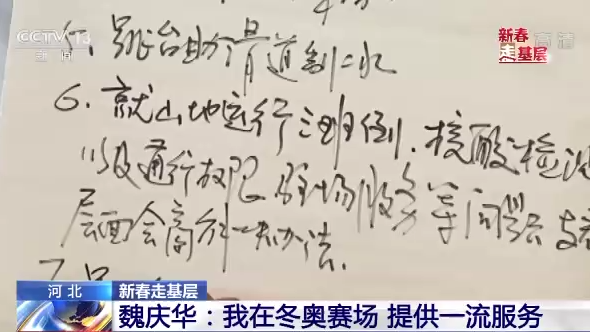 CCTV 13
新闻
新春
走基层
高清
跳台助滑道制冰
6、就山地运行三班倒、核酸检测
以及通行权限、驻场服务等问题
层面会商解决办法.
河北
新春走基层
魏庆华：我在冬奥赛场 提供一流服务